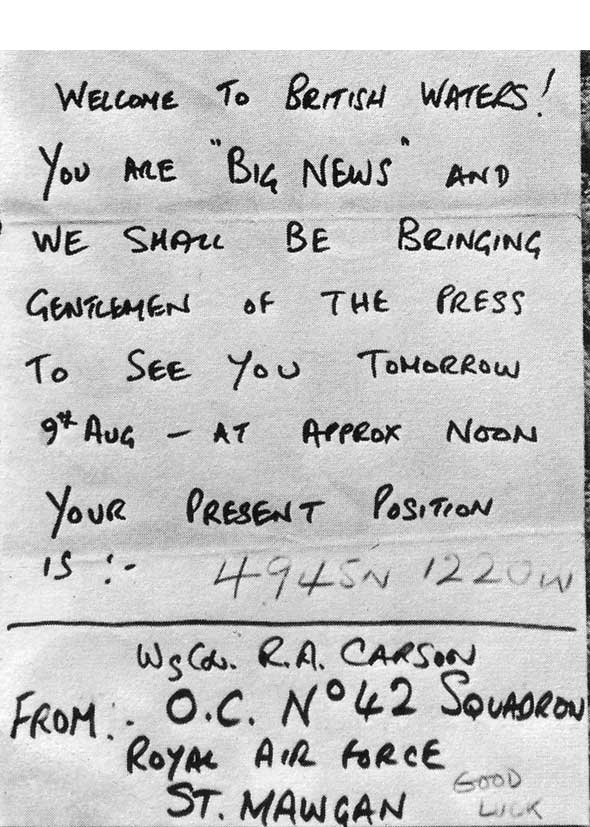 WELCOME TO BRITISH WATERS!
YOU ARE "BIG NEWS" AND
WE SHALL BE BRINGING
GENTLEMEN OF THE PRESS
TO SEE YOU TOMORROW
9th AUG – AT APPROX NOON
YOUR PRESENT POSITION
IS :- 4945N 1220W
Wg Cdr. R.A. CARSON
FROM :- O.C. No 42 SQUADRON
ROYAL AIR FORCE
ST. MAWGAN
GOOD
LUCK